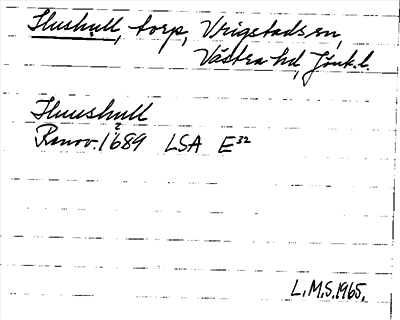 Hushull, torp, Vrigstads sn,
Västra hd, Jönk.l.
Huushull
Ranov. 1689 LSA E³²
2
L.M.S. 1965.